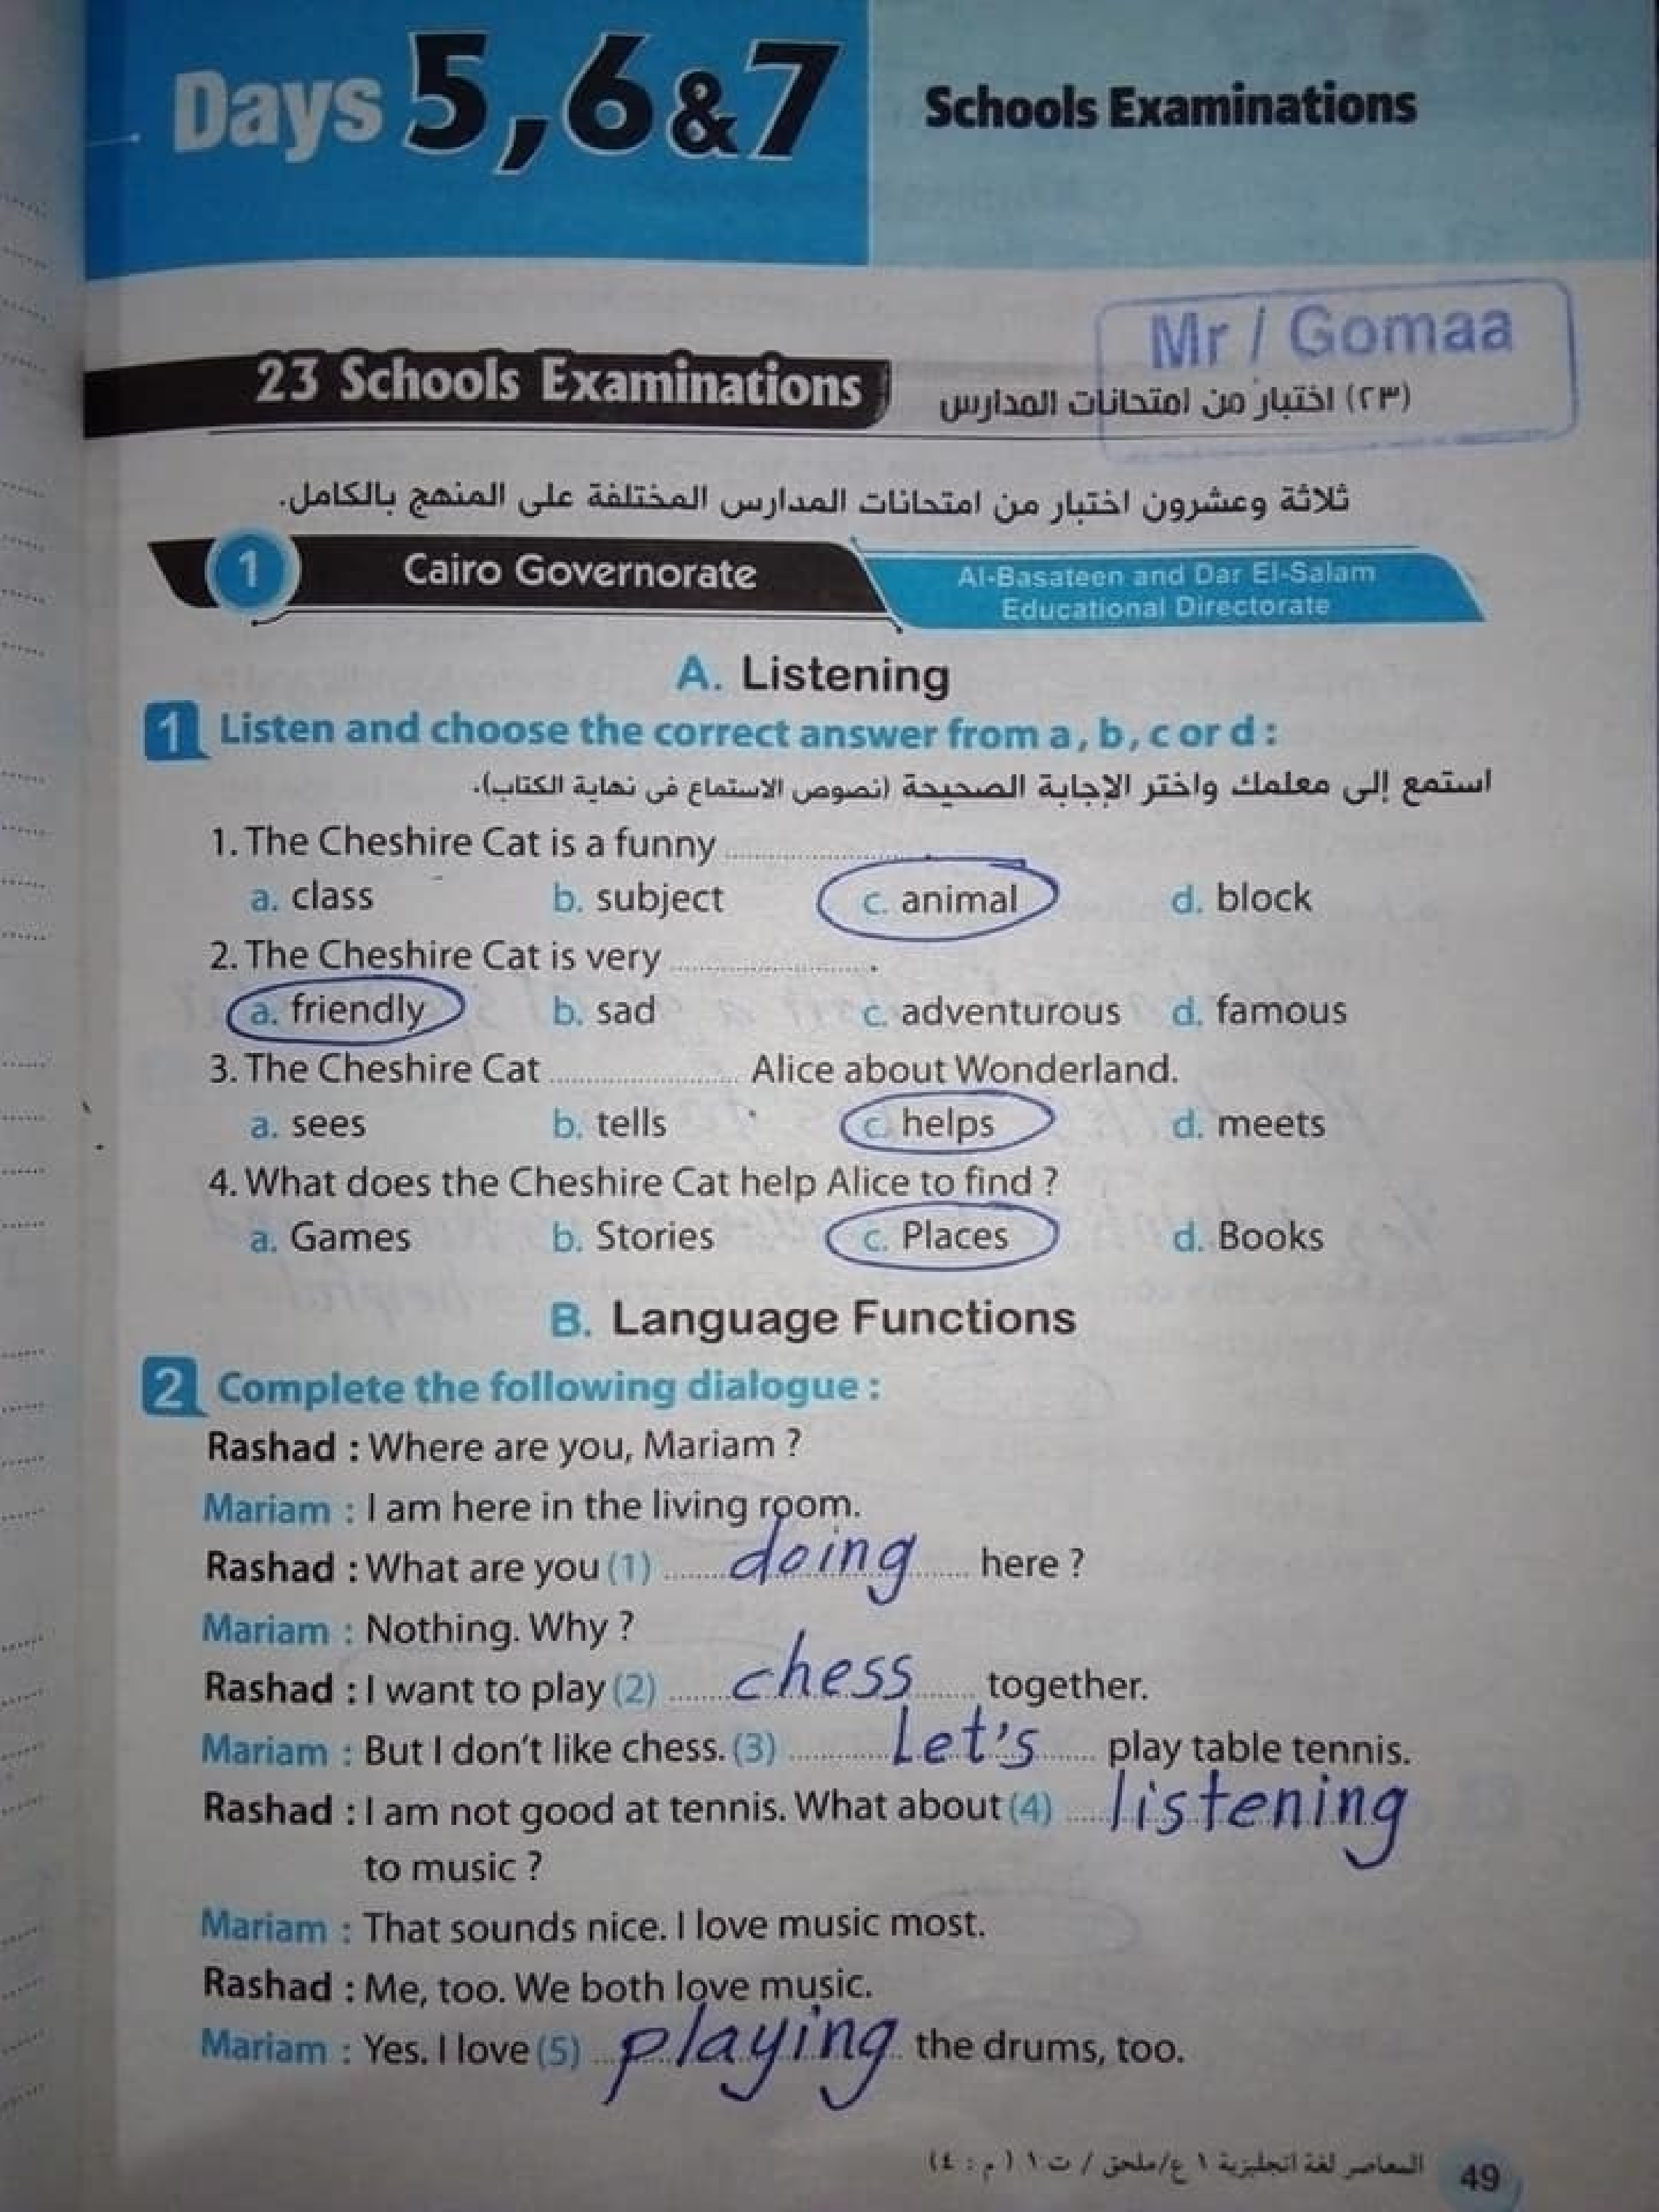 Days 5,6&7
Schools Examinations
Mr / Gomaa
23 Schools Examinations
(٢٣) اختبار من امتحانات المدارس
ثلاثة وعشرون اختبار من امتحانات المدارس المختلفة على المنهج بالكامل.
1 Cairo Governorate
Al-Basateen and Dar El-Salam
Educational Directorate
A. Listening
1 Listen and choose the correct answer from a, b, c or d :
استمع إلى معلمك واختر الإجابة الصحيحة (نصوص الاستماع فى نهاية الكتاب).
1. The Cheshire Cat is a funny .................... .
a. class b. subject c. animal d. block
2. The Cheshire Cat is very .................... .
a. friendly b. sad c. adventurous d. famous
3. The Cheshire Cat .................... Alice about Wonderland.
a. sees b. tells c. helps d. meets
4. What does the Cheshire Cat help Alice to find ?
a. Games b. Stories c. Places d. Books
B. Language Functions
2 Complete the following dialogue :
Rashad : Where are you, Mariam ?
Mariam : I am here in the living room.
Rashad : What are you (1) doing here ?
Mariam : Nothing. Why ?
Rashad : I want to play (2) chess together.
Mariam : But I don't like chess. (3) Let's play table tennis.
Rashad : I am not good at tennis. What about (4) listening
to music ?
Mariam : That sounds nice. I love music most.
Rashad : Me, too. We both love music.
Mariam : Yes. I love (5) playing the drums, too.
المعاصر لغة انجليزية ١ ع/ملحق / ت ١ ( م : ٤) 49